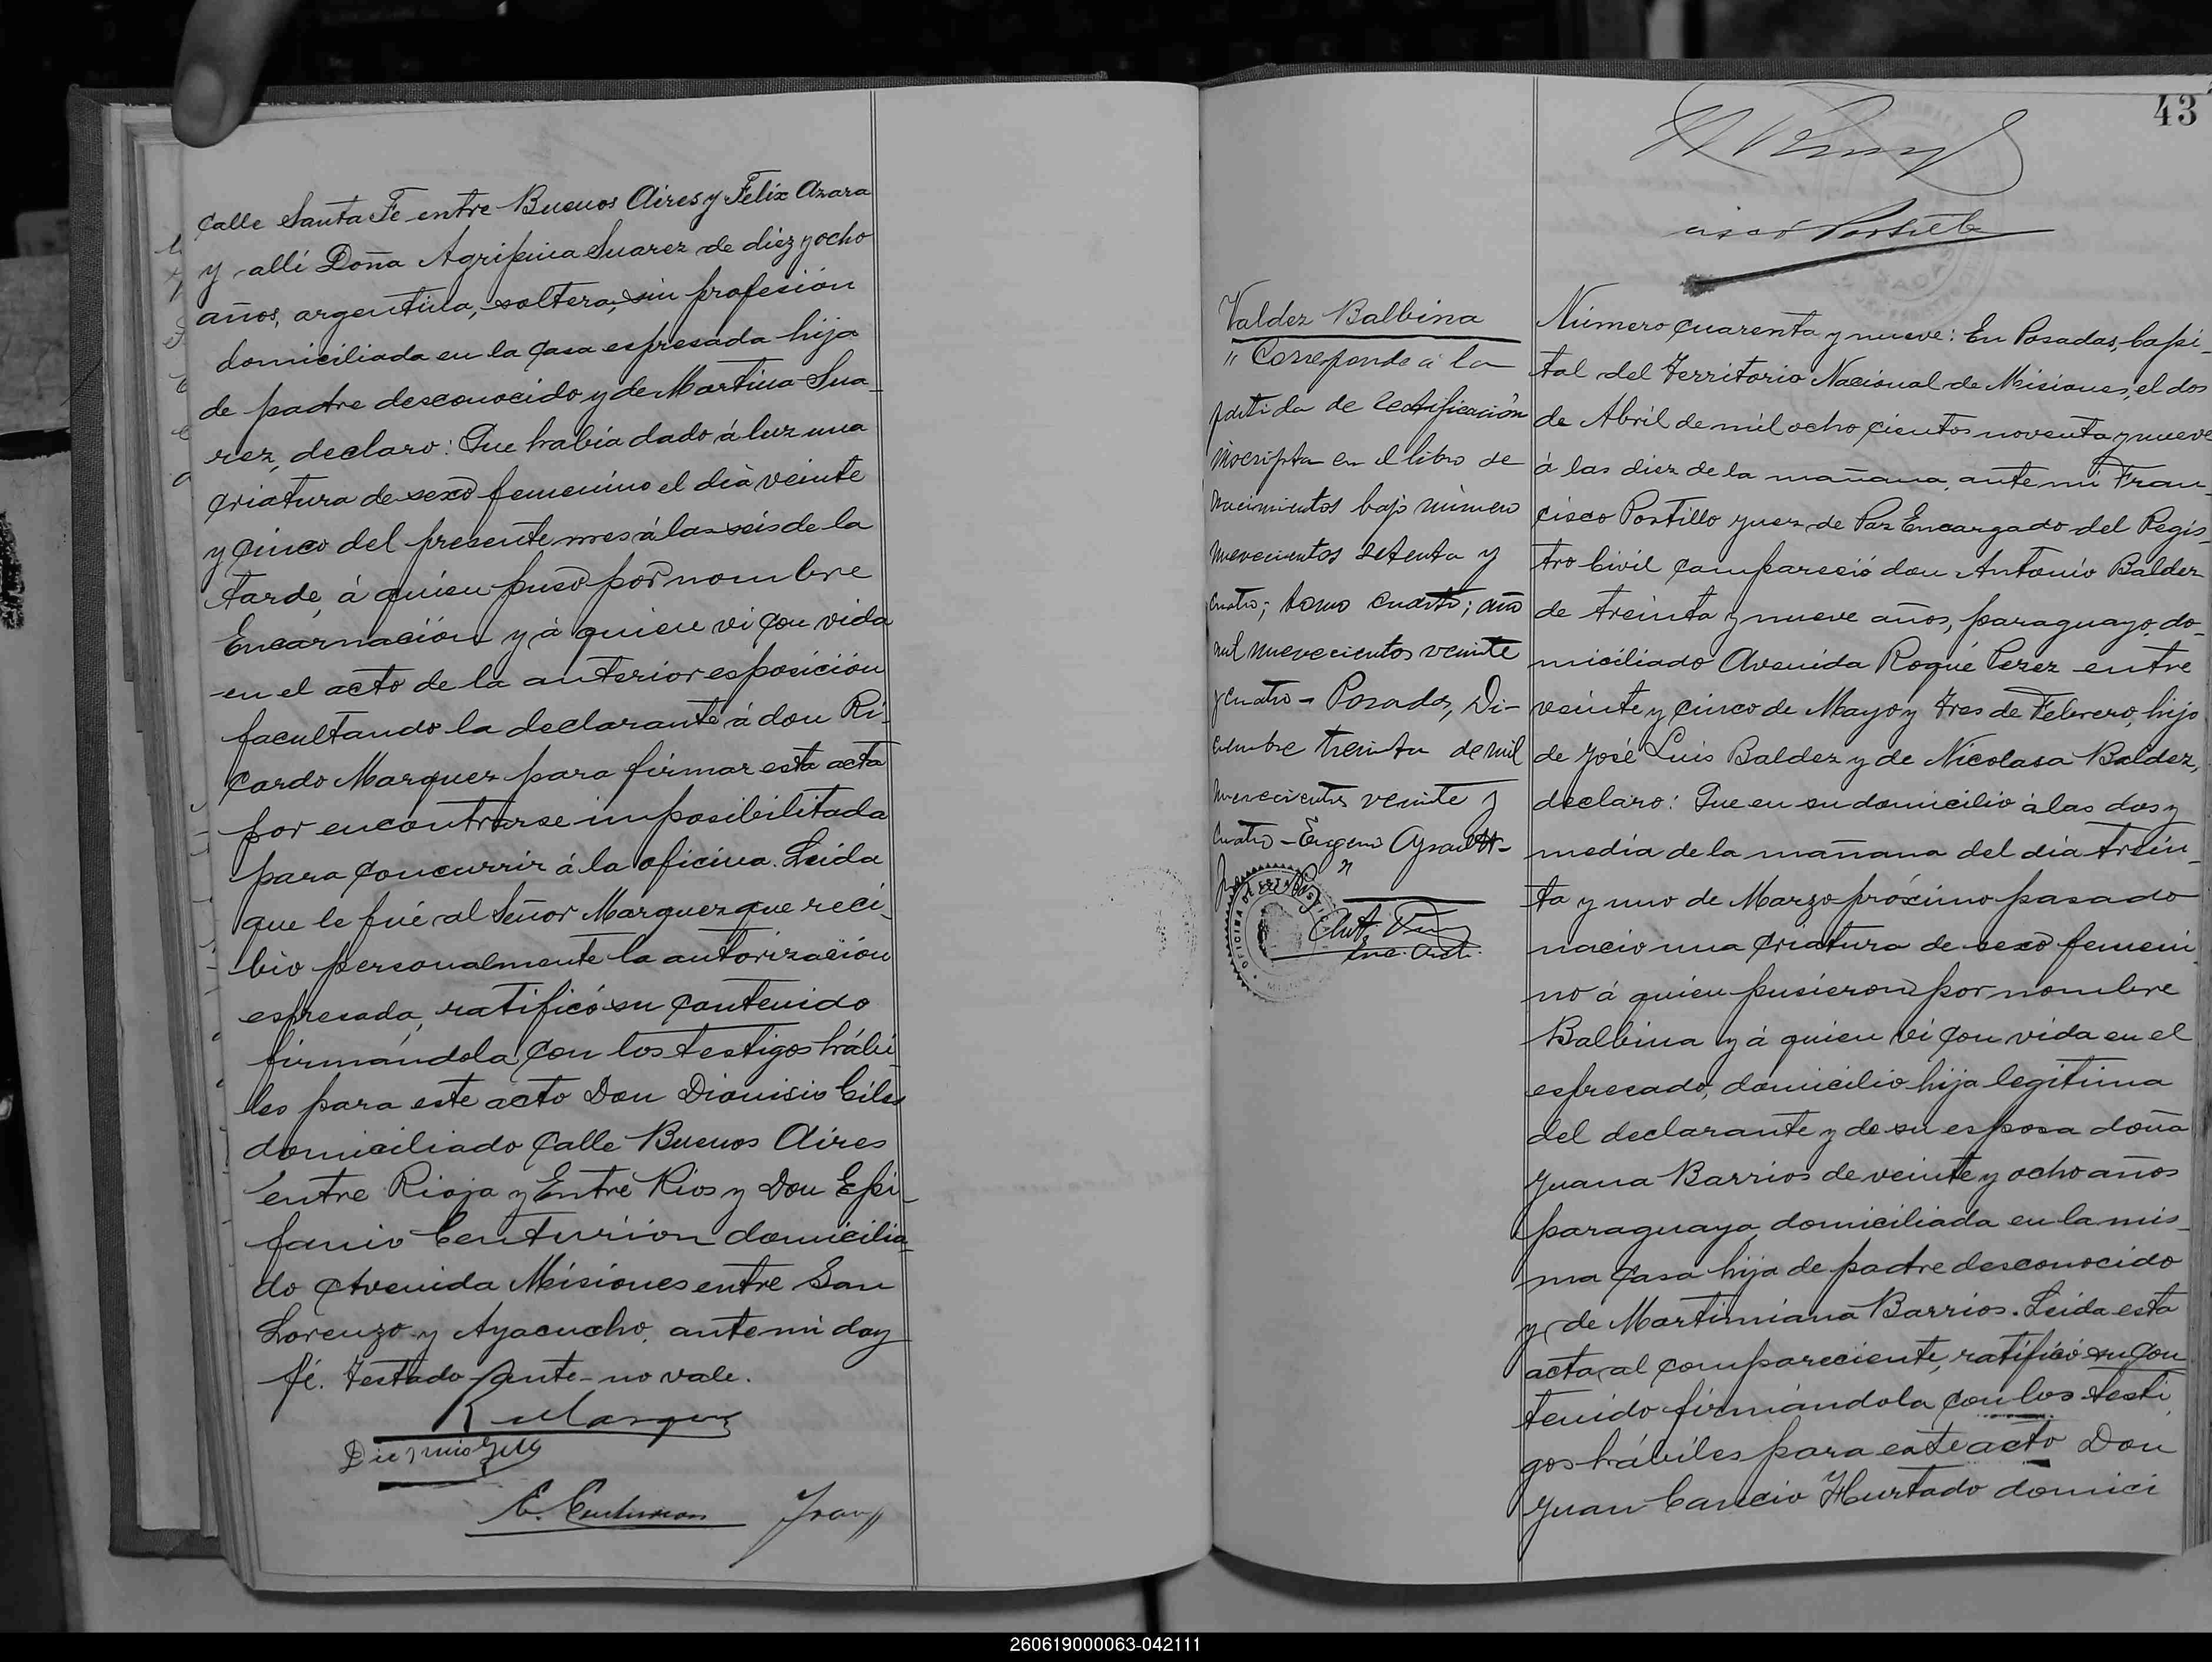 Calle Santa Fe entre Buenos Aires y Felix Azara
y allí Doña Agripina Suarez de diez y ocho
años, argentina, soltera, sin profesión
domiciliada en la casa espresada hija
de padre desconocido y de Martina Sua_
rez, declaro: Que había dado á luz una
criatura de sexo femenino el día veinte
y cinco del presente mes á las seis de la
tarde, á quien puso por nombre
Encarnación y á quien vi con vida
en el acto de la anterior esposición
facultando la declarante á don Ri-
cardo Marquez para firmar esta acta
por encontrarse imposibilitada
para concurrir á la oficina. Leida
que le fué al Señor Marquez que reci_
bio personalmente la autorización
espresada, ratificó su contenido
firmándola con los testigos hábi_
les para este acto Don Dionisio Giles
domiciliado Calle Buenos Aires
entre Rioja y Entre Rios y Don Epi_
fanio Centurion domicilia_
do Avenida Misiones entre San
Lorenzo y Ayacucho, ante mi doy
fé. Testado-ante-no vale.
R Marquez
Dionisio Giles
E. Centurion Fran
43
cisco Portillo
Valdez Balbina
" Corresponde á la
partida de rectificación
inscripta en el libro de
nacimientos bajo número
novecientos setenta y
cuatro; tomo cuarto; año
mil novecientos veinte
y cuatro - Posadas, Di-
ciembre treinta de mil
novecientos veinte y
cuatro - Eugenio
Enc. Arch.
Número cuarenta y nueve: En Posadas, Capi_
tal del Territorio Nacional de Misiones, el dos
de Abril de mil ocho cientos noventa y nueve
á las diez de la mañana, ante mi Fran_
cisco Portillo Juez de Paz Encargado del Regis_
tro Civil compareció don Antonio Baldez
de treinta y nueve años, paraguayo, do_
miciliado Avenida Roque Perez entre
veinte y cinco de Mayo y Tres de Febrero, hijo
de José Luis Baldez y de Nicolasa Baldez,
declaro: Que en su domicilio á las dos y
media de la mañana del día trein_
ta y uno de Marzo próximo pasado
nacio una criatura de sexo femeni_
no á quien pusieron por nombre
Balbina y á quien vi con vida en el
espresado, domicilio hija legítima
del declarante y de su esposa doña
Juana Barrios de veinte y ocho años
paraguaya domiciliada en la mis_
ma casa hija de padre desconocido
y de Martimiana Barrios. Leida esta
acta al compareciente, ratificó su con
tenido firmándola con los testi_
gos hábiles para este acto Don
Juan Cancio Hurtado domici
260619000063-042111